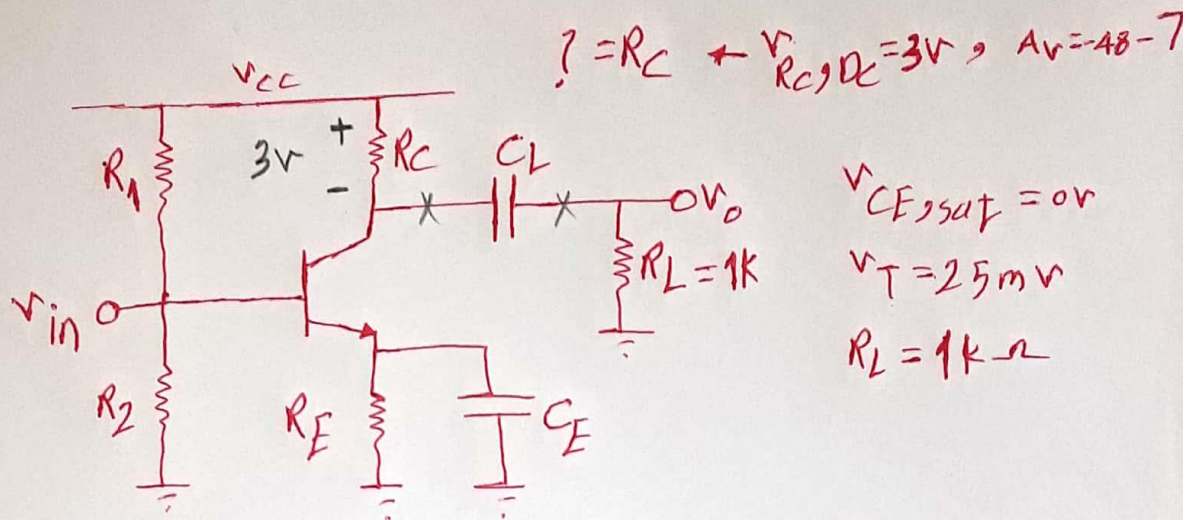 ? = RC ← VRC,DC = 3V, AV = -48-7
VCC
R1
3V
+
-
RC
CL
Vo
RL = 1K
Vin
R2
RE
CE
VCE,sat = 0V
VT = 25mV
RL = 1kΩ